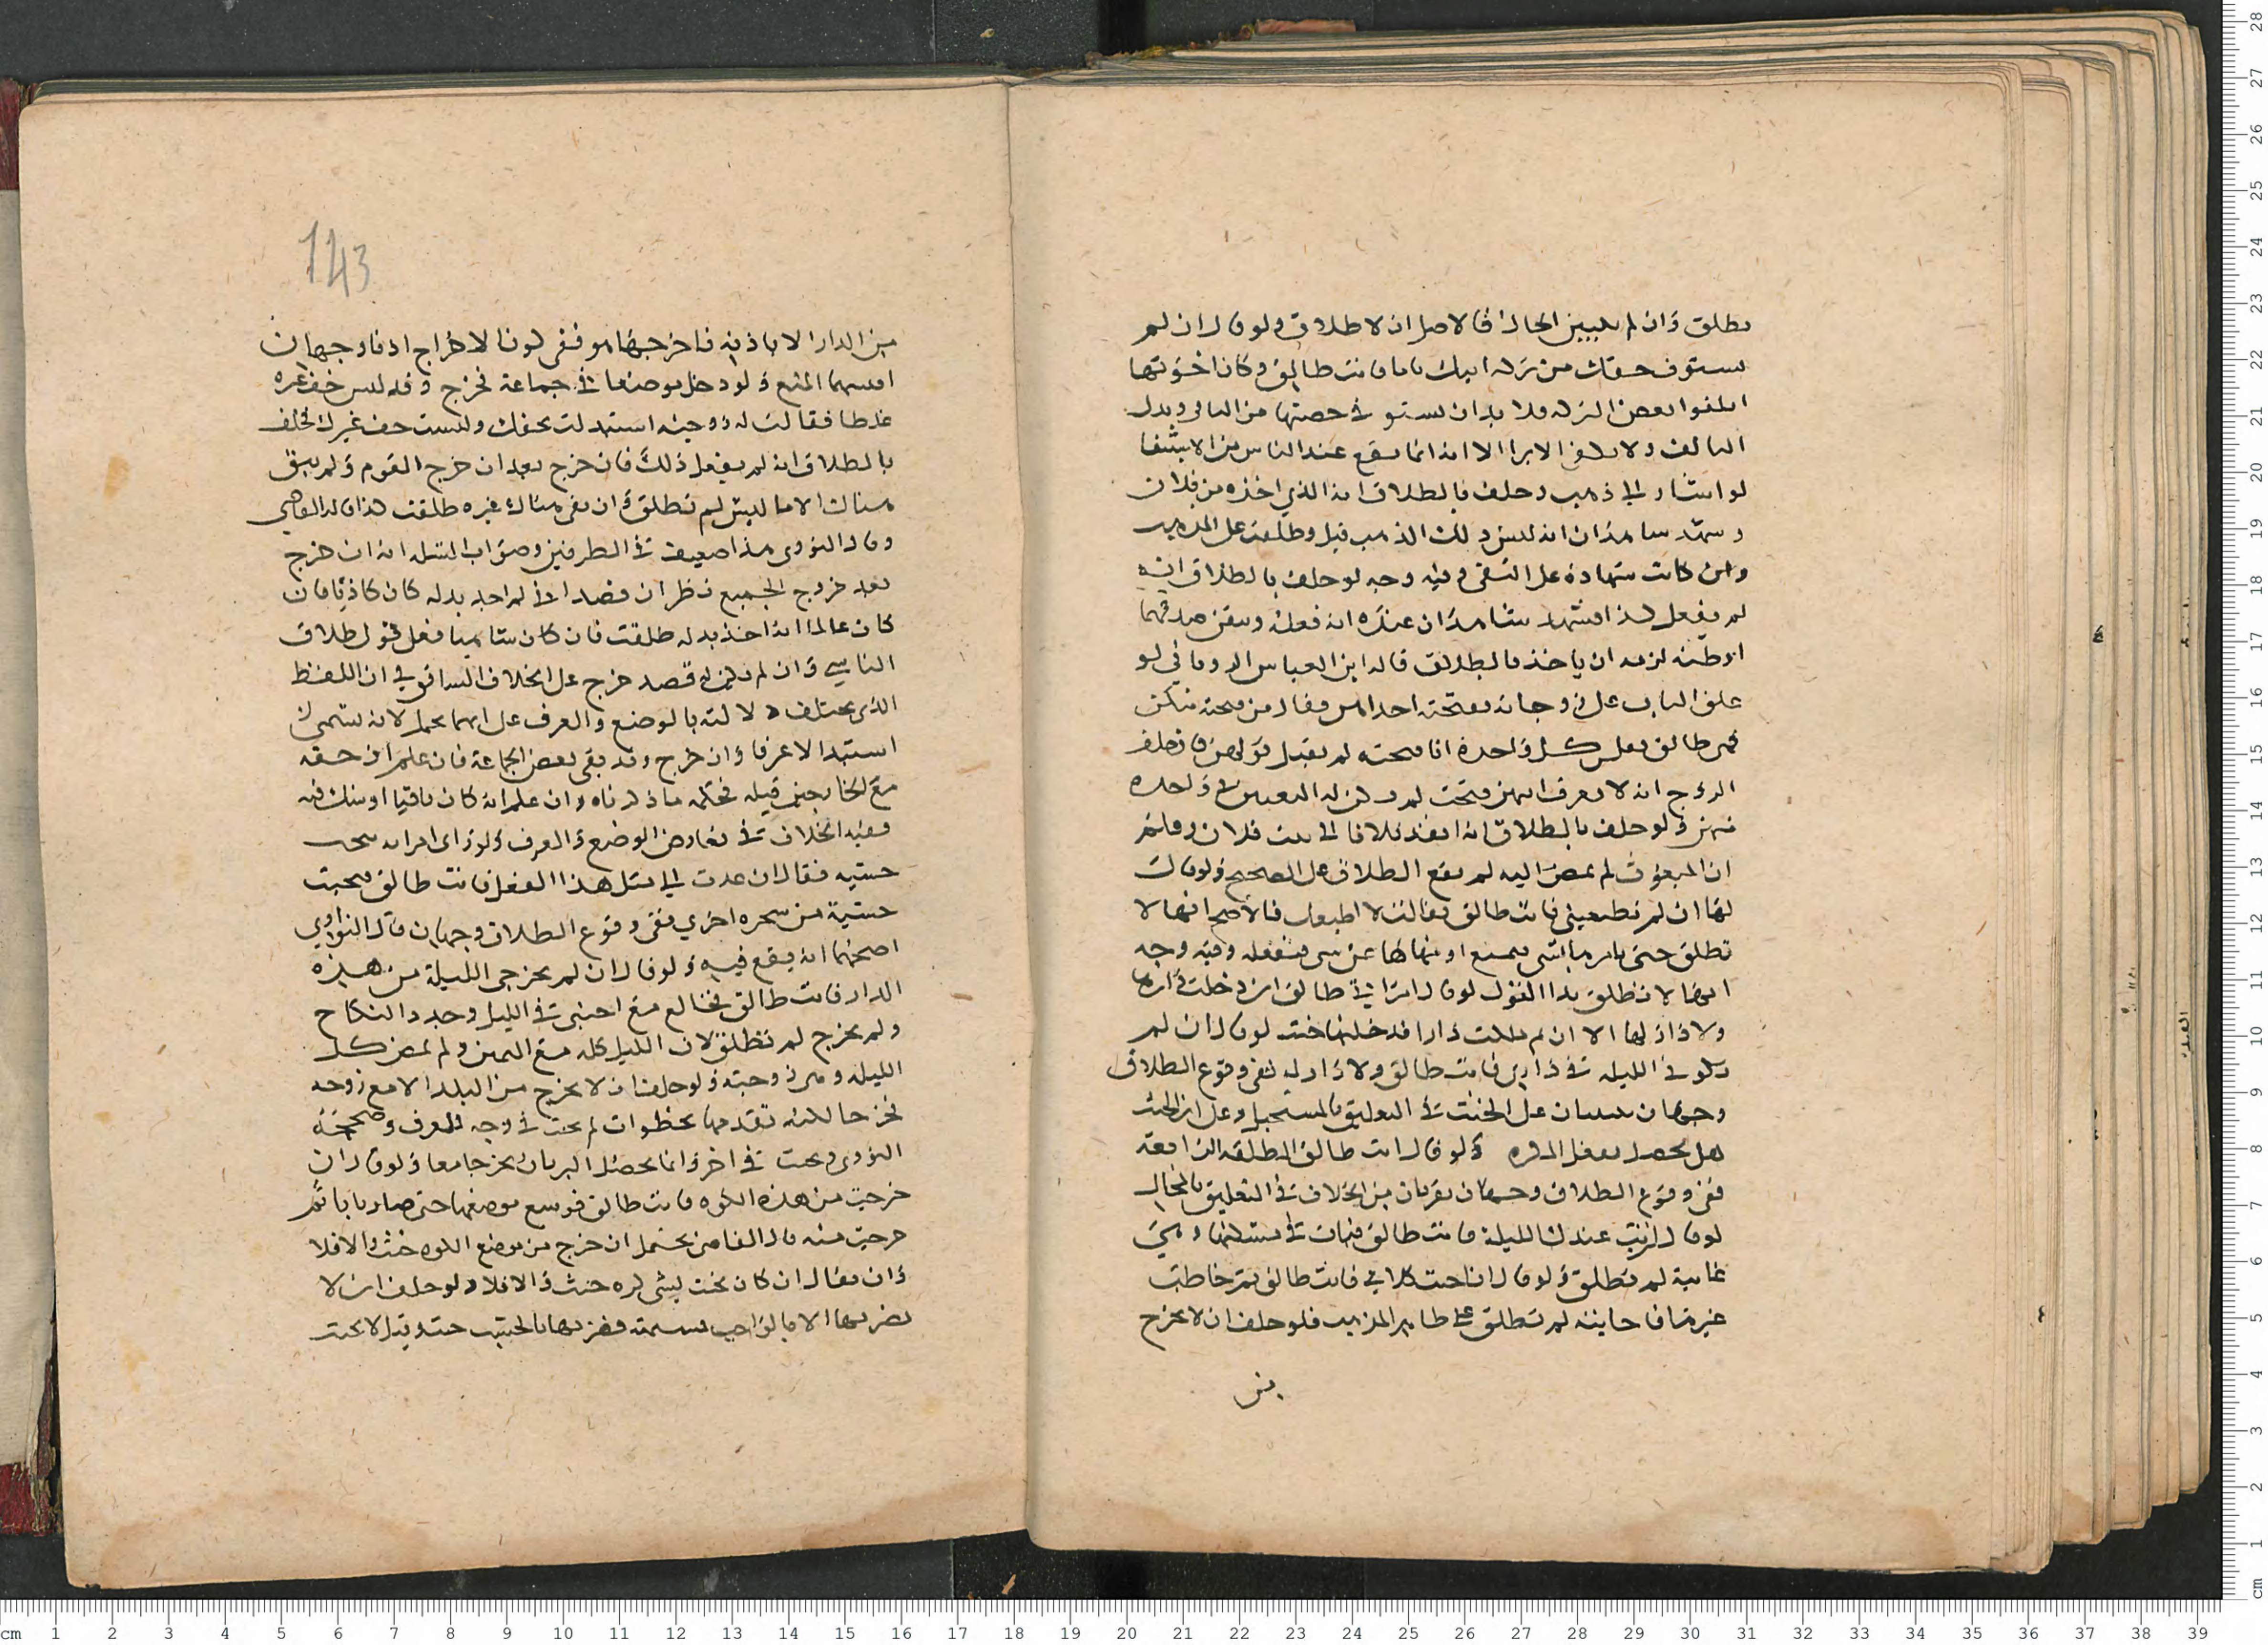 تطلق وان لم يتبين الحال فالاصل ان لا طلاق ولو قال ان لم
تستوف حقك من تركة ابيك تاما فانت طالق وكان اخوتها
اتلفوا بعض التركة فلا بد ان تستوفي حصتها من الباقي وبدل
التالف ولا يكفي الابرا الا انه انما يقع عند الياس من الاستيفا
لو اشار الى ذهب وحلف بالطلاق انه الذي اخذه من فلان
وشهد شاهدان انه ليس ذلك الذهب قيل وطلقت على المذهب
وان كانت شهادة على النفي وفيه وجه لو حلف بالطلاق انه
لم يفعل كذا فشهد شاهدان عنده انه فعله وتيقن صدقهما
او ظنه لزمه ان ياخذ بالطلاق قاله ابن العباس الروياني لو
علق الباب على زوجاته ففتحته احداهن فقال من فتحته منكن
فهي طالق فقالت كل واحدة انا فتحته لم يقبل قولهن فان حلف
الزوج انه لا يعرف ايتهن فتحت لم يكن له التعيين في واحدة
منهن ولو حلف بالطلاق انه انفذ فلانا الى بيت فلان وعلم
ان المبعوث لم يمض اليه لم يقع الطلاق على الصحيح ولو قال
لها ان لم تطيعيني فانت طالق فقالت لا اطيعك فالاصح انها لا
تطلق حتى يامرها بشي فتمتنع او ينهاها عن شي فتفعله وفيه وجه
ايضا لا تطلق بهذا القول لو قال امراتي طالق ان دخلت دارها
ولا دار لها الا ان ملكت دارا فدخلتها حنث لو قال ان لم
تكوني الليلة في داري فانت طالق ولا دار له ففي وقوع الطلاق
وجهان مبنيان على الحنث في التعليق بالمستحيل وعلى ان الحنث
هل يحصل بفعل المكره ولو قال انت طالق الطلقة الرابعة
ففي وقوع الطلاق وجهان يقربان من الخلاف في التعليق بالمحال
لو قال ان بت عندك الليلة فانت طالق فبات في مسكنها وهي
غايبة لم تطلق ولو قال ان اجبت كلامي فانت طالق ثم خاطب
غيرها فاجابته لم تطلق على ظاهر المذهب فلو حلف ان لا تخرج
من
143
من الدار الا باذنه فاخرجها هو ففي كون الاخراج اذنا وجهان
اقيسهما المنع ولو دخل موضعا في جماعة فخرج وقد لبس خف غيره
غلطا فقالت له زوجته استبدلت بخفك ولبست خف غيرك فحلف
بالطلاق انه لم يفعل ذلك فان خرج بعد ان خرج القوم ولم يبق
هناك الا ما لبس لم تطلق وان بقي هناك غيره طلقت كذا قال القاضي
وقال النووي هذا ضعيف في الطرفين وصواب المسلة انه ان خرج
بعد خروج الجميع نظر ان قصد اني لم اجد بدله كان كاذبا فان
كان عالما انه اخذ بدله طلقت فان كان ساهيا فعلى قول طلاق
الناسي وان لم يكن له قصد خرج على الخلاف السابق في ان اللفظ
الذي يختلف دلالته بالوضع والعرف على ايهما يحمل لانه يسمى ذلك
استبدالا عرفا وان خرج وقد بقي بعض الجماعة فان علم ان خفه
مع الخارجين قبله فحكمه ما ذكرناه وان علم انه كان باقيا او شك فيه
ففيه الخلاف في تعارض الوضع والعرف ولو راى امراته تنحت
خشبة فقال ان عدت الى مثل هذا الفعل فانت طالق فنحتت
خشبة من شجرة اخرى ففي وقوع الطلاق وجهان قال النواوي
اصحهما انه يقع فيه ولو قال ان لم تخرجي الليلة من هذه
الدار فانت طالق فخالع مع اجنبي في الليل وجدد النكاح
ولم تخرج لم تطلق لان الليل كله مع اليمين ولم يمض كل
الليلة وهي زوجته ولو حلف ان لا يخرج من البلد الا مع زوجه
فخرجا لكنه تقدمها بخطوات لم يحنث في وجه للعرف وصححه
النووي ويحنث في اخر وانما يحصل البر بان يخرجا معا ولو قال ان
خرجت من هذه الكوة فانت طالق فوسع موضعها حتى صار بابا ثم
خرجت منه قال القاضي يحتمل ان خرج من موضع الكوة حنث والا فلا
وان يقال ان كان يحنث يسمى كوة حنث والا فلا ولو حلف ان لا
يضربها الا بالواجب فشتمته فضربها بالخشب حنث وقيل لا يحنث